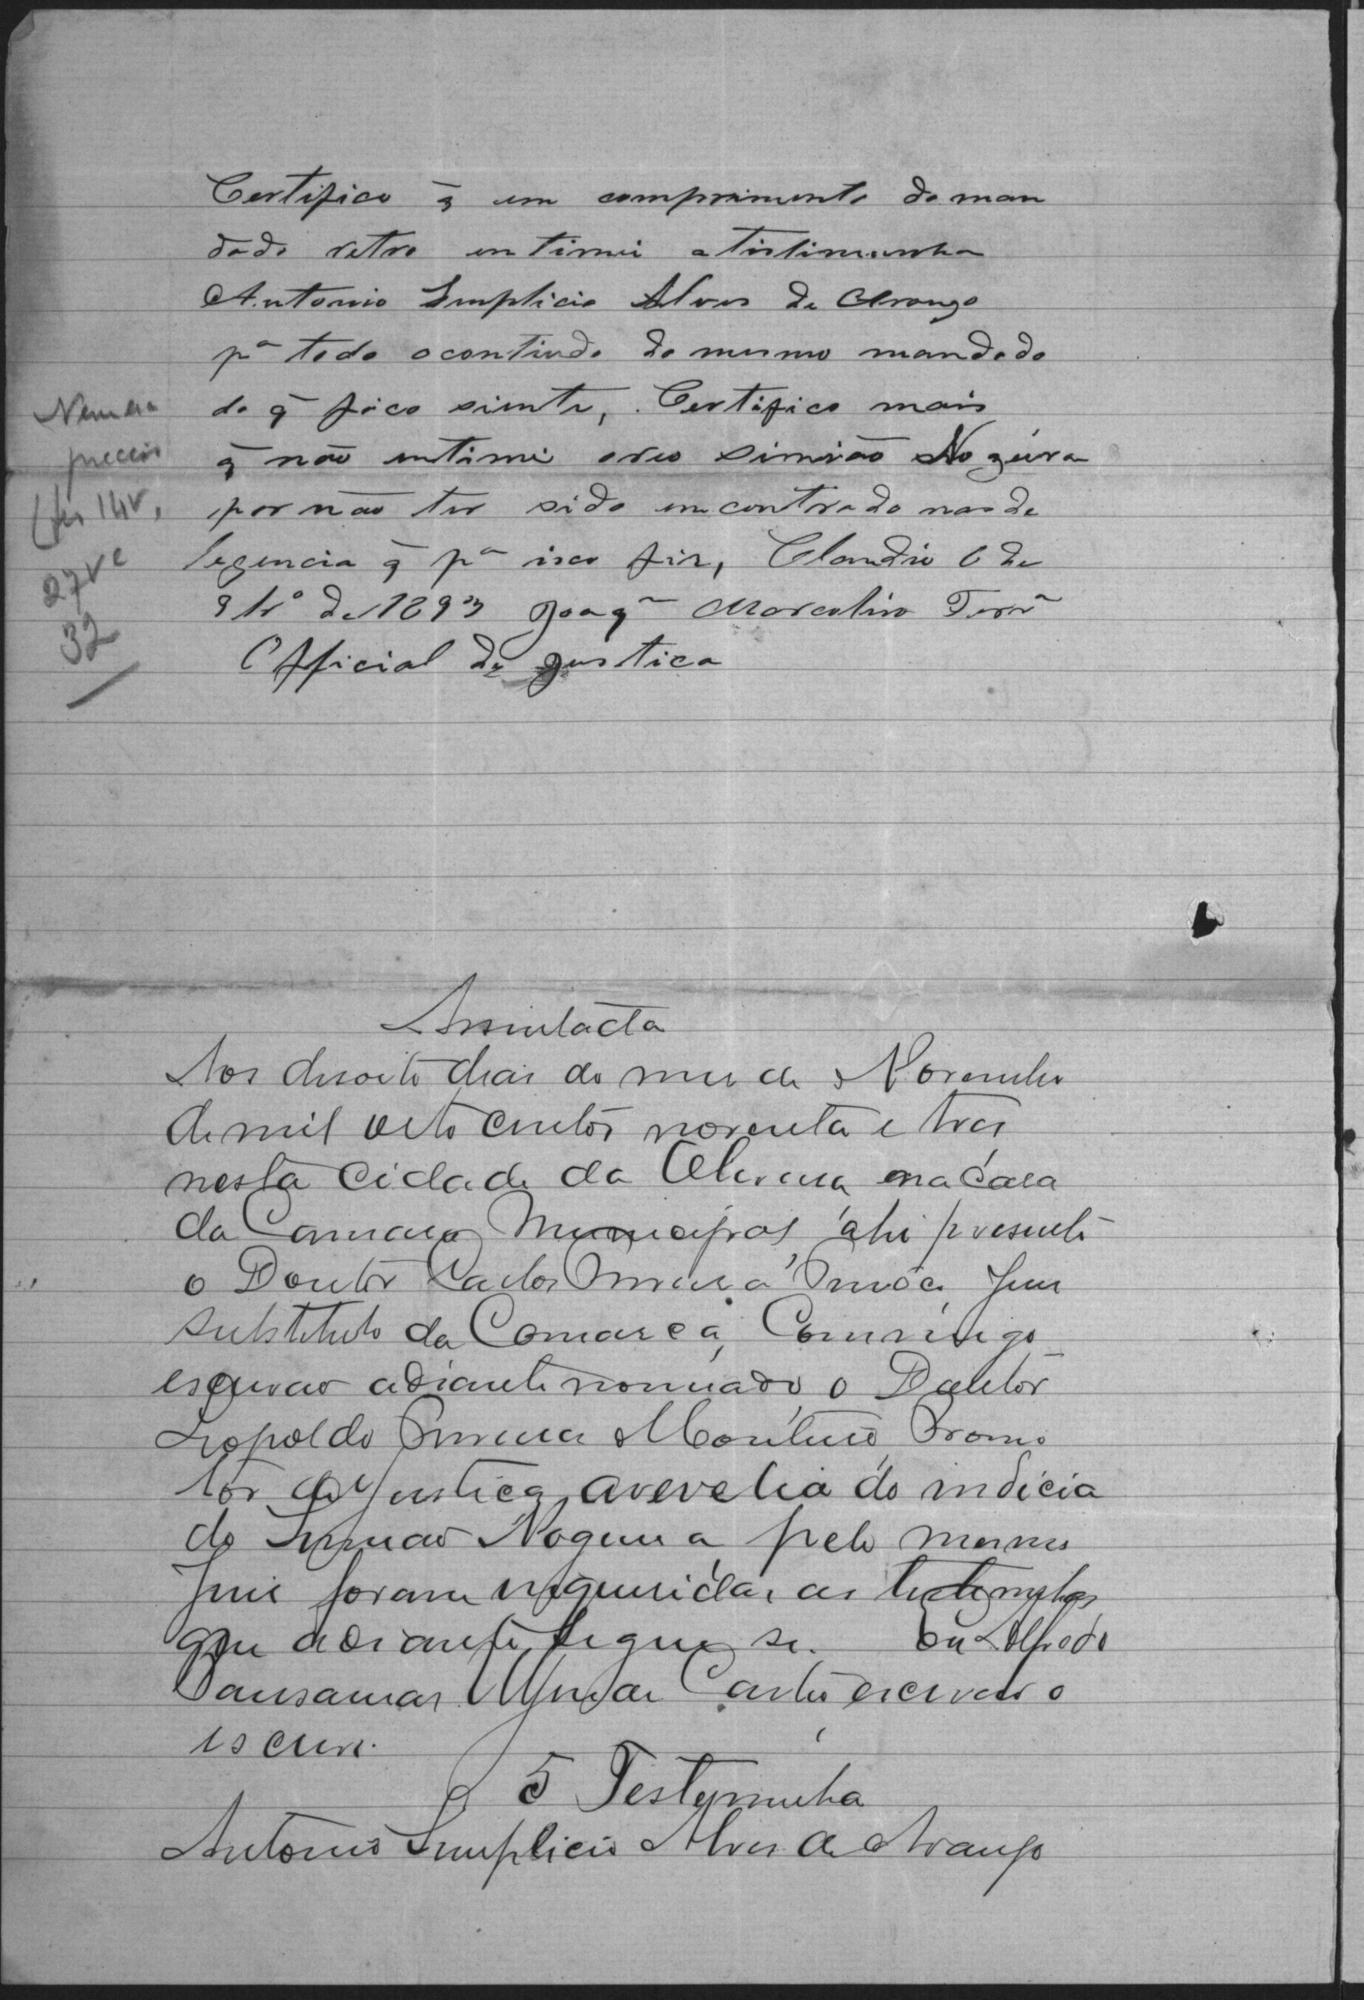 Certifico q̃ em comprimento do man
dado retro entimei a tistimunha
Antonio Simplicio Alves de Araujo
pª todo o contiudo do mesmo mandado
do q̃ fico siente, Certifico mais
q̃ não entimei o reo Simião Nogueira
por não ter sido emcontrado nas de
legencia q̃ pª isco fiz, Claudio 6 de
9brº de 1893 Joaqᵐ Marcolino Ferrª
Official de Justica
Nem era
preciso
(fls 14v,
27vc
32
Assentada
Aos desoito dias do mes de Novembro
de mil oito centos noventa e tres
nesta cidade da Oliveira na Casa
da Camara Municipal, ahi presente
o Doutor Carlos Juis
substituto da Comarca, Commigo
escrivao adiante nomeado, o Doutor
Leopoldo Monteiro, Promo
tor da Justica, a revelia do indicia
do Simiao Nogueira, pelo mesmo
Juis foram inqueridas as testemunhas
que adiante segue se. Eu Alfredo
Castro escrivao o
escrevi.
5 Testemunha
Antonio Simplicio Alves de Araujo